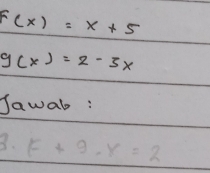 F(x) = x + 5
g(x) = 2 - 3x
Jawab :